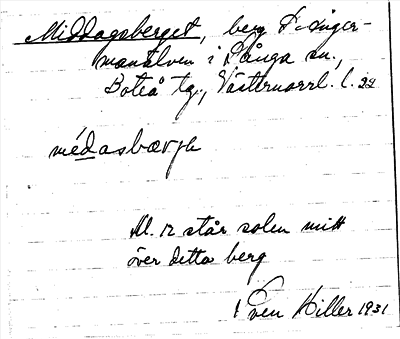 Middagsberget, berg i Ånger-
manälven i Sånga sn.,
Boteå tg., Västernorrl. l. 22
médasbærjə
Kl. 12 står solen mitt
över detta berg
Sven Hiller 1931